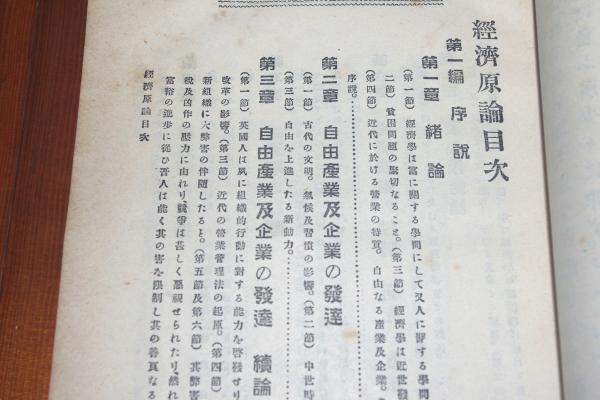 經濟原論目次
第一編 序說
第一章 緖論
(第一節) 經濟學は富に關する學問にして又人に關する學問
二節) 貧困問題の緊切なること。(第三節) 經濟學は近世發
(第四節) 近代に於ける營業の特質。自由なる產業及企業。
序說。
第二章 自由產業及企業の發達
(第一節) 古代の文明。氣候及習慣の影響。(第二節) 中世時
(第三節) 自由を上進したる新動力。
第三章 自由產業及企業の發達 續論
(第一節) 英國人は夙に組織的行動に對する能力を啓發せり
改革の影響。(第三節) 近代の營業管理法の起原。(第四節)
新組織に大弊害の伴隨したること。(第五節及第六節) 其弊害
稅及凶作の壓力に由れり、競爭は甚しく惡視せられたり、然れ
富裕の進步に從ひ吾人は能く其の害を限制し其の善良なる
經濟原論目次